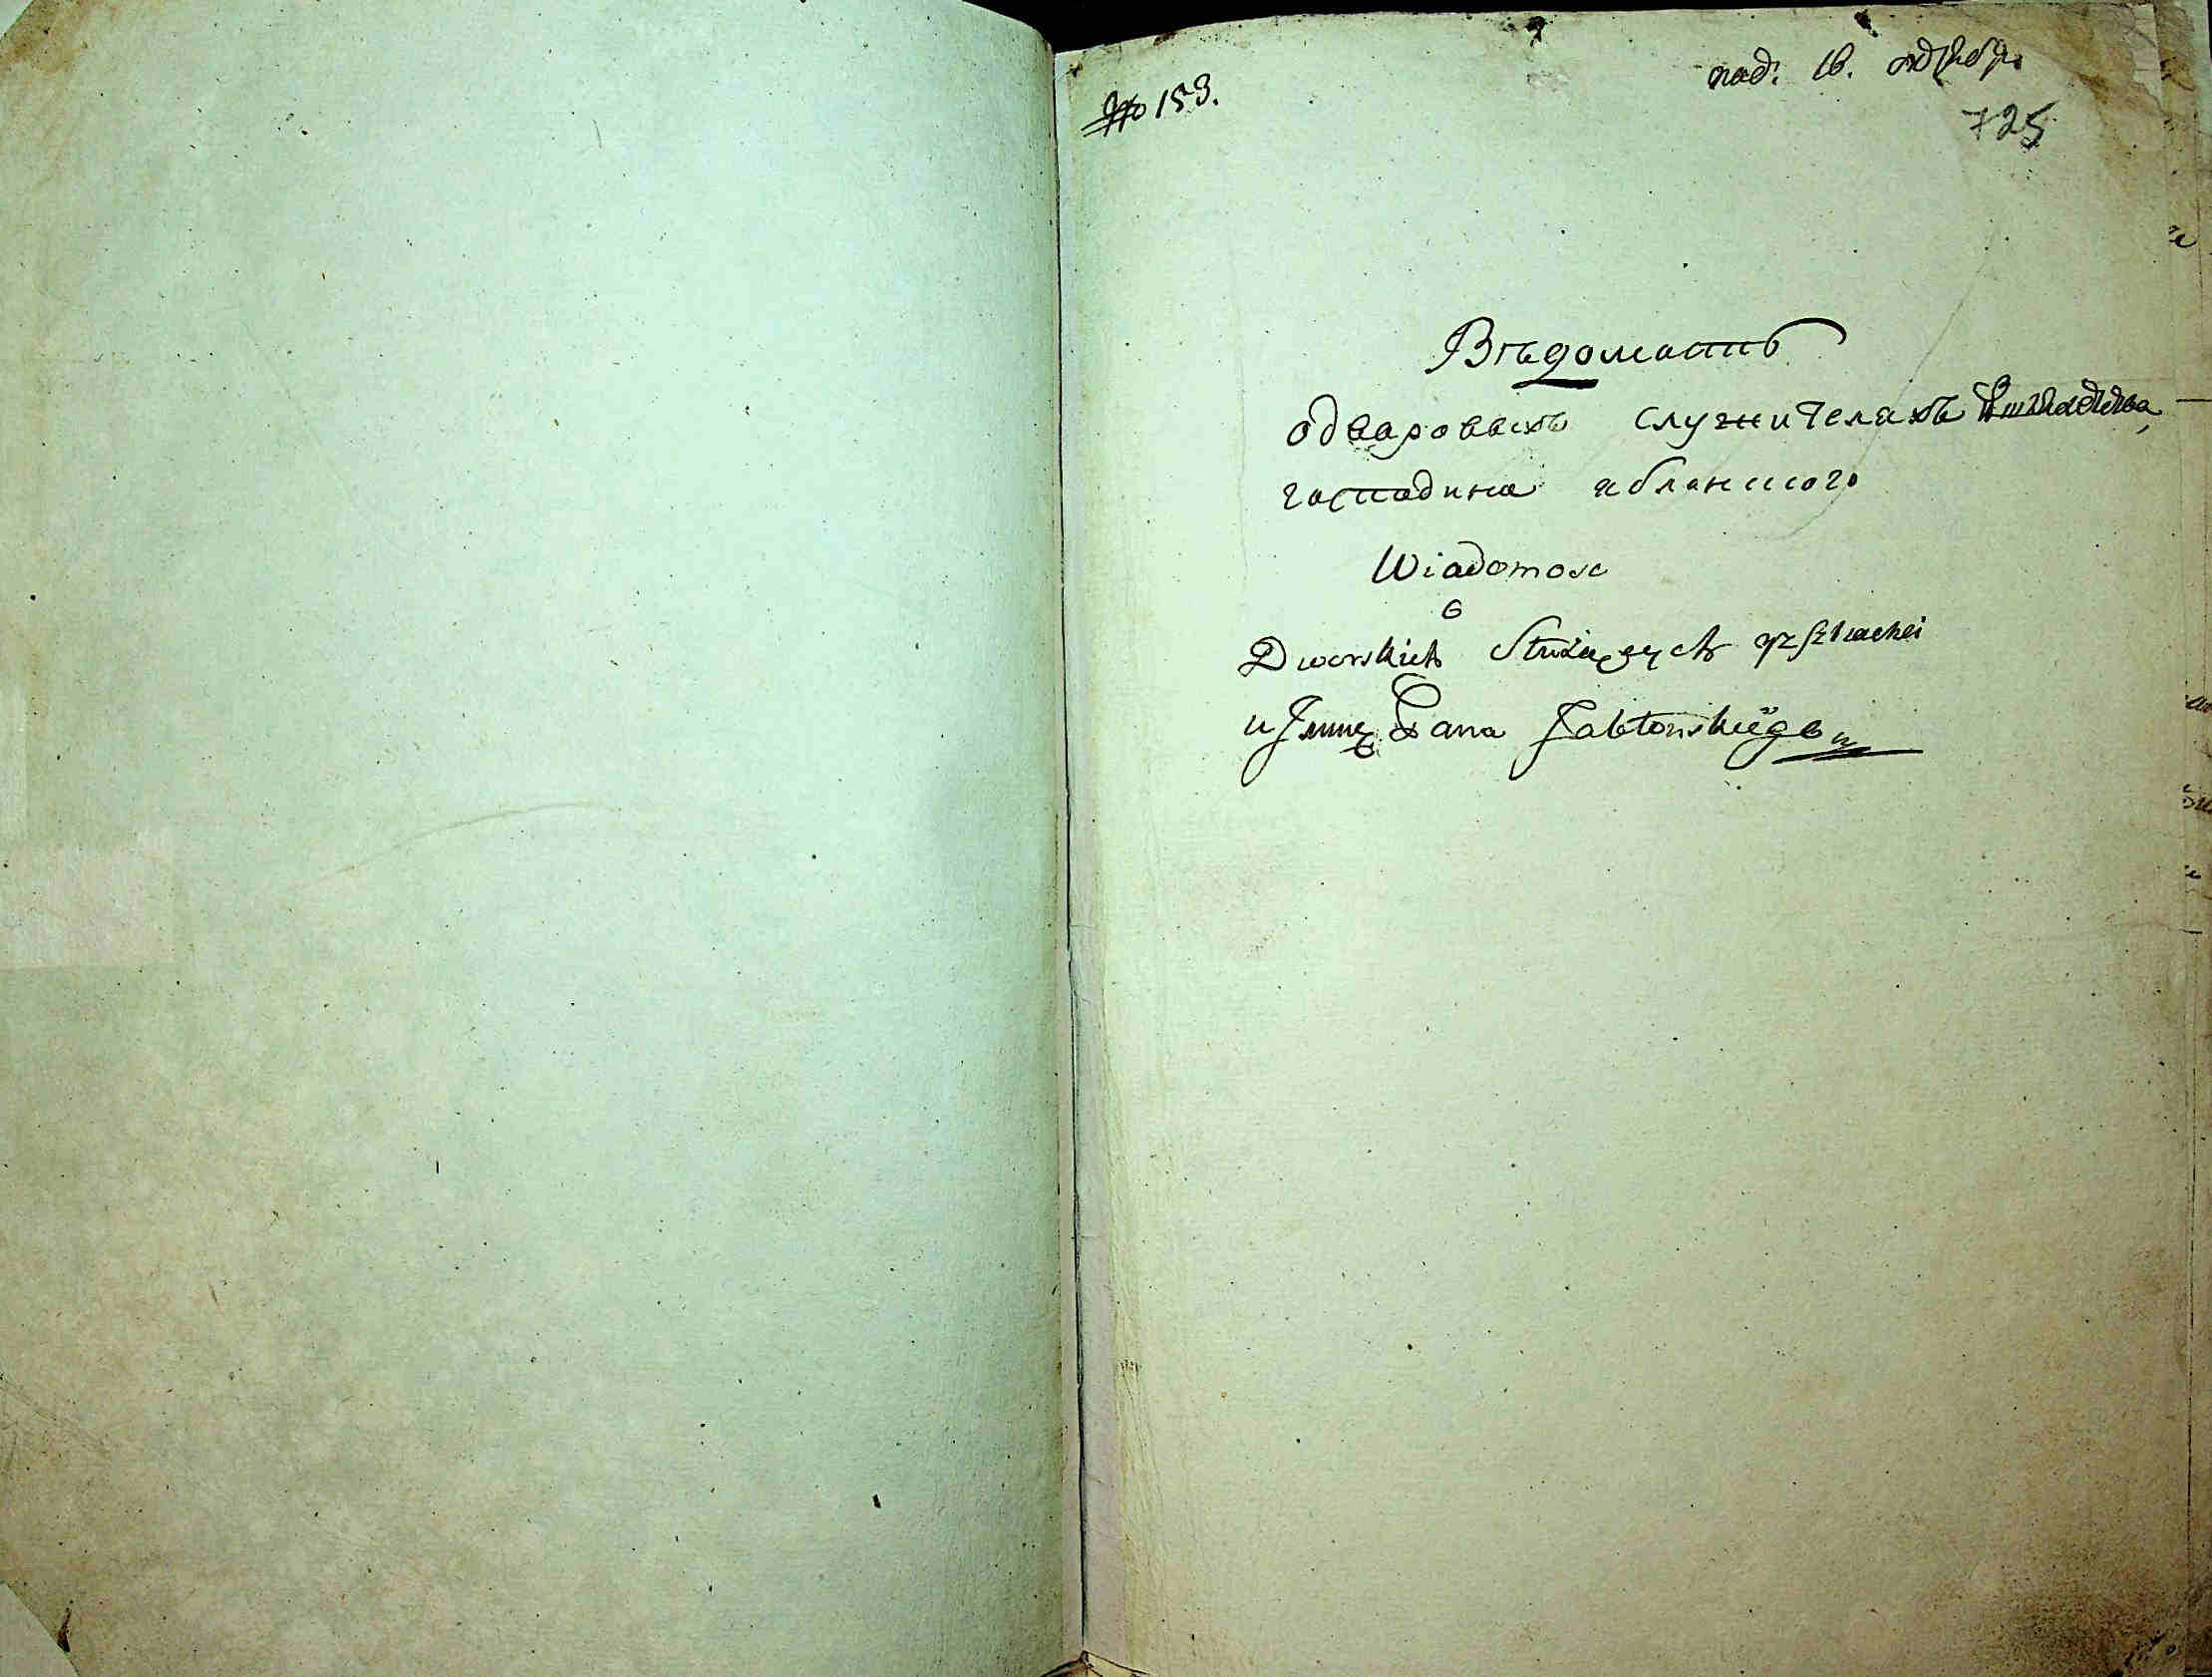 № 153.
под. 16. октебр.
725
Вѣдомость
о дваровыхъ служителахъ
господина яблонского
Wiadomosc
o
Dworskich Służących y Szlachei
u Jmmę Pana Jabłonskiego